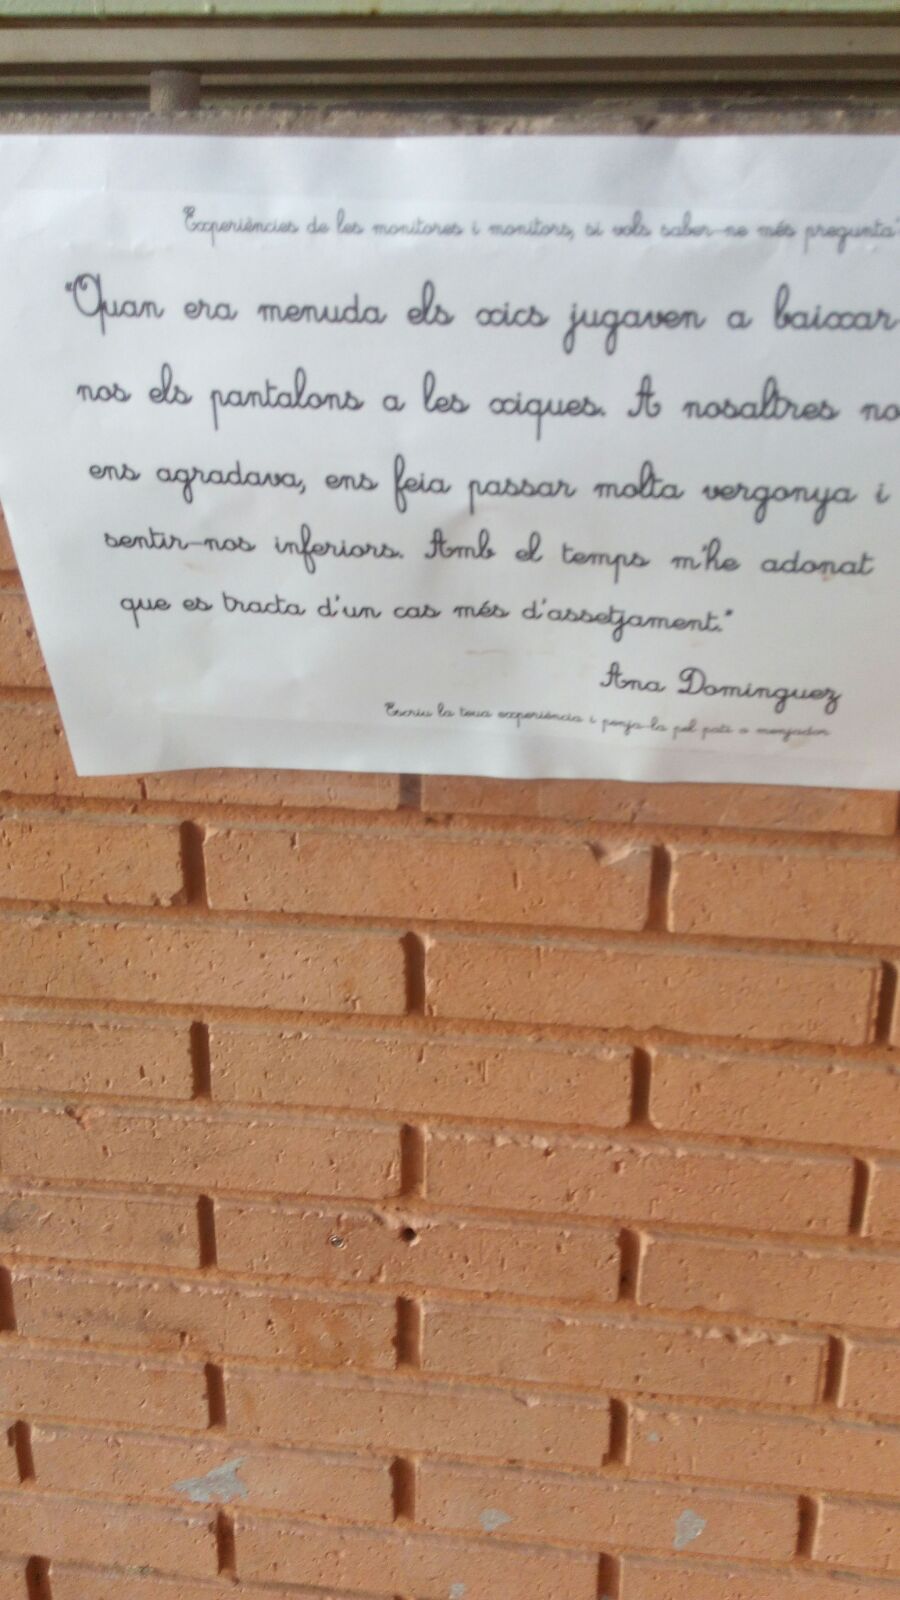 Experiències de les monitores i monitors, si vols saber-ne més pregunta'
"Quan era menuda els xics jugaven a baixar
nos els pantalons a les xiques. A nosaltres no
ens agradava, ens feia passar molta vergonya i
sentir-nos inferiors. Amb el temps m'he adonat
que es tracta d'un cas més d'assetjament."
Ana Dominguez
Escriu la teua experiència i penja-la pel pati o menjador